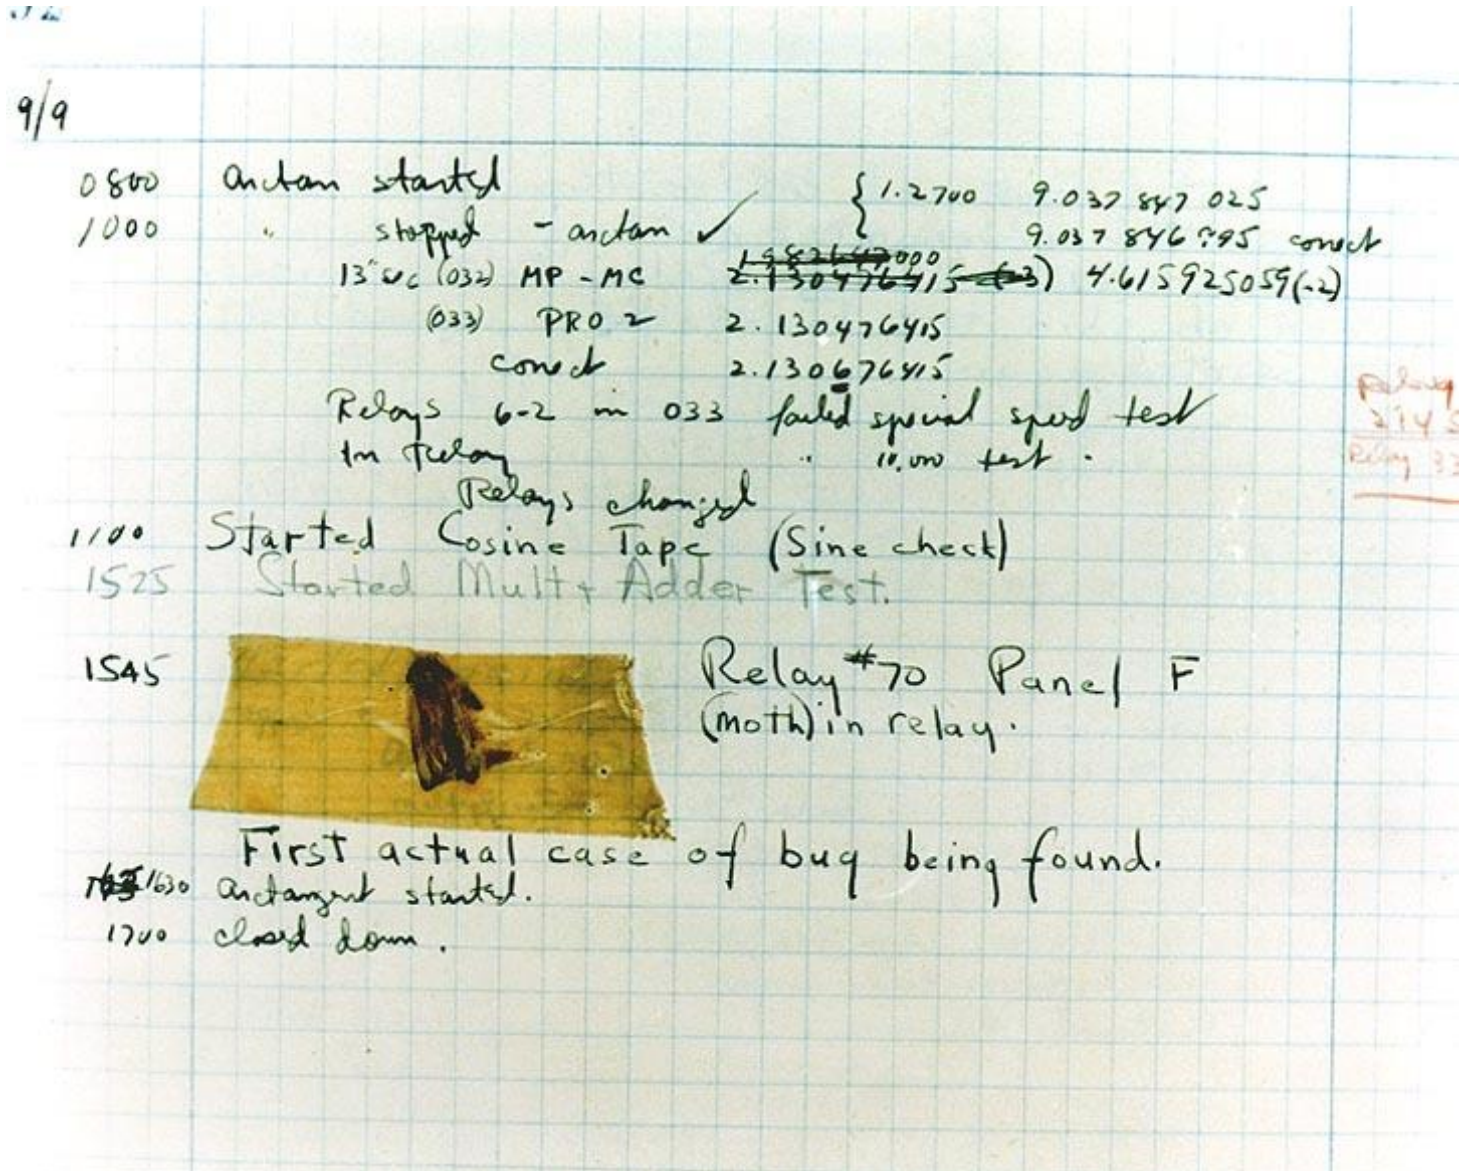 9/9
0800 arctan started { 1.2700 9.037 847 025
1000 " stopped - arctan ✓ 9.037 846 995 correct
13" uc (032) MP - MC 1.982647000 2.130476415 (-3) 4.615925059(-2)
(033) PRO 2 2.130476415
correct 2.130676415
Relays 6-2 in 033 failed special speed test
In Relay " 10,000 test .
Relays changed
1100 Started Cosine Tape (Sine check)
1525 Started Mult + Adder Test.
1545 Relay #70 Panel F
(moth) in relay.
First actual case of bug being found.
1630 arctangent started.
1700 closed down.
Relay
2145
Relay 33